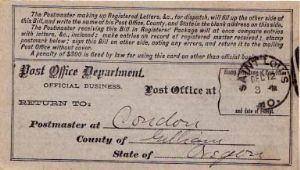 The Postmaster making up Registered Letters, &c., for dispatch, will fill up the other side of
this Bill, and write the name of his Post Office, County, and State in the blank address on this side.
The Postmaster receiving this Bill in Registered Package will at once compare entries
with letters, &c., inclosed; make entries on record of registered matter received; stamp
postmark below; sign this Bill on other side, noting any errors, and return it to the mailing
Post Office without cover.
A penalty of $300 is fixed by law for using this card on other than official business.
Post Office Department.
OFFICIAL BUSINESS.
Post Office at
SAINT LOUIS
MO.
RETURN TO:
and date of
Postmaster at Condon
County of Gilliam
State of Oregon